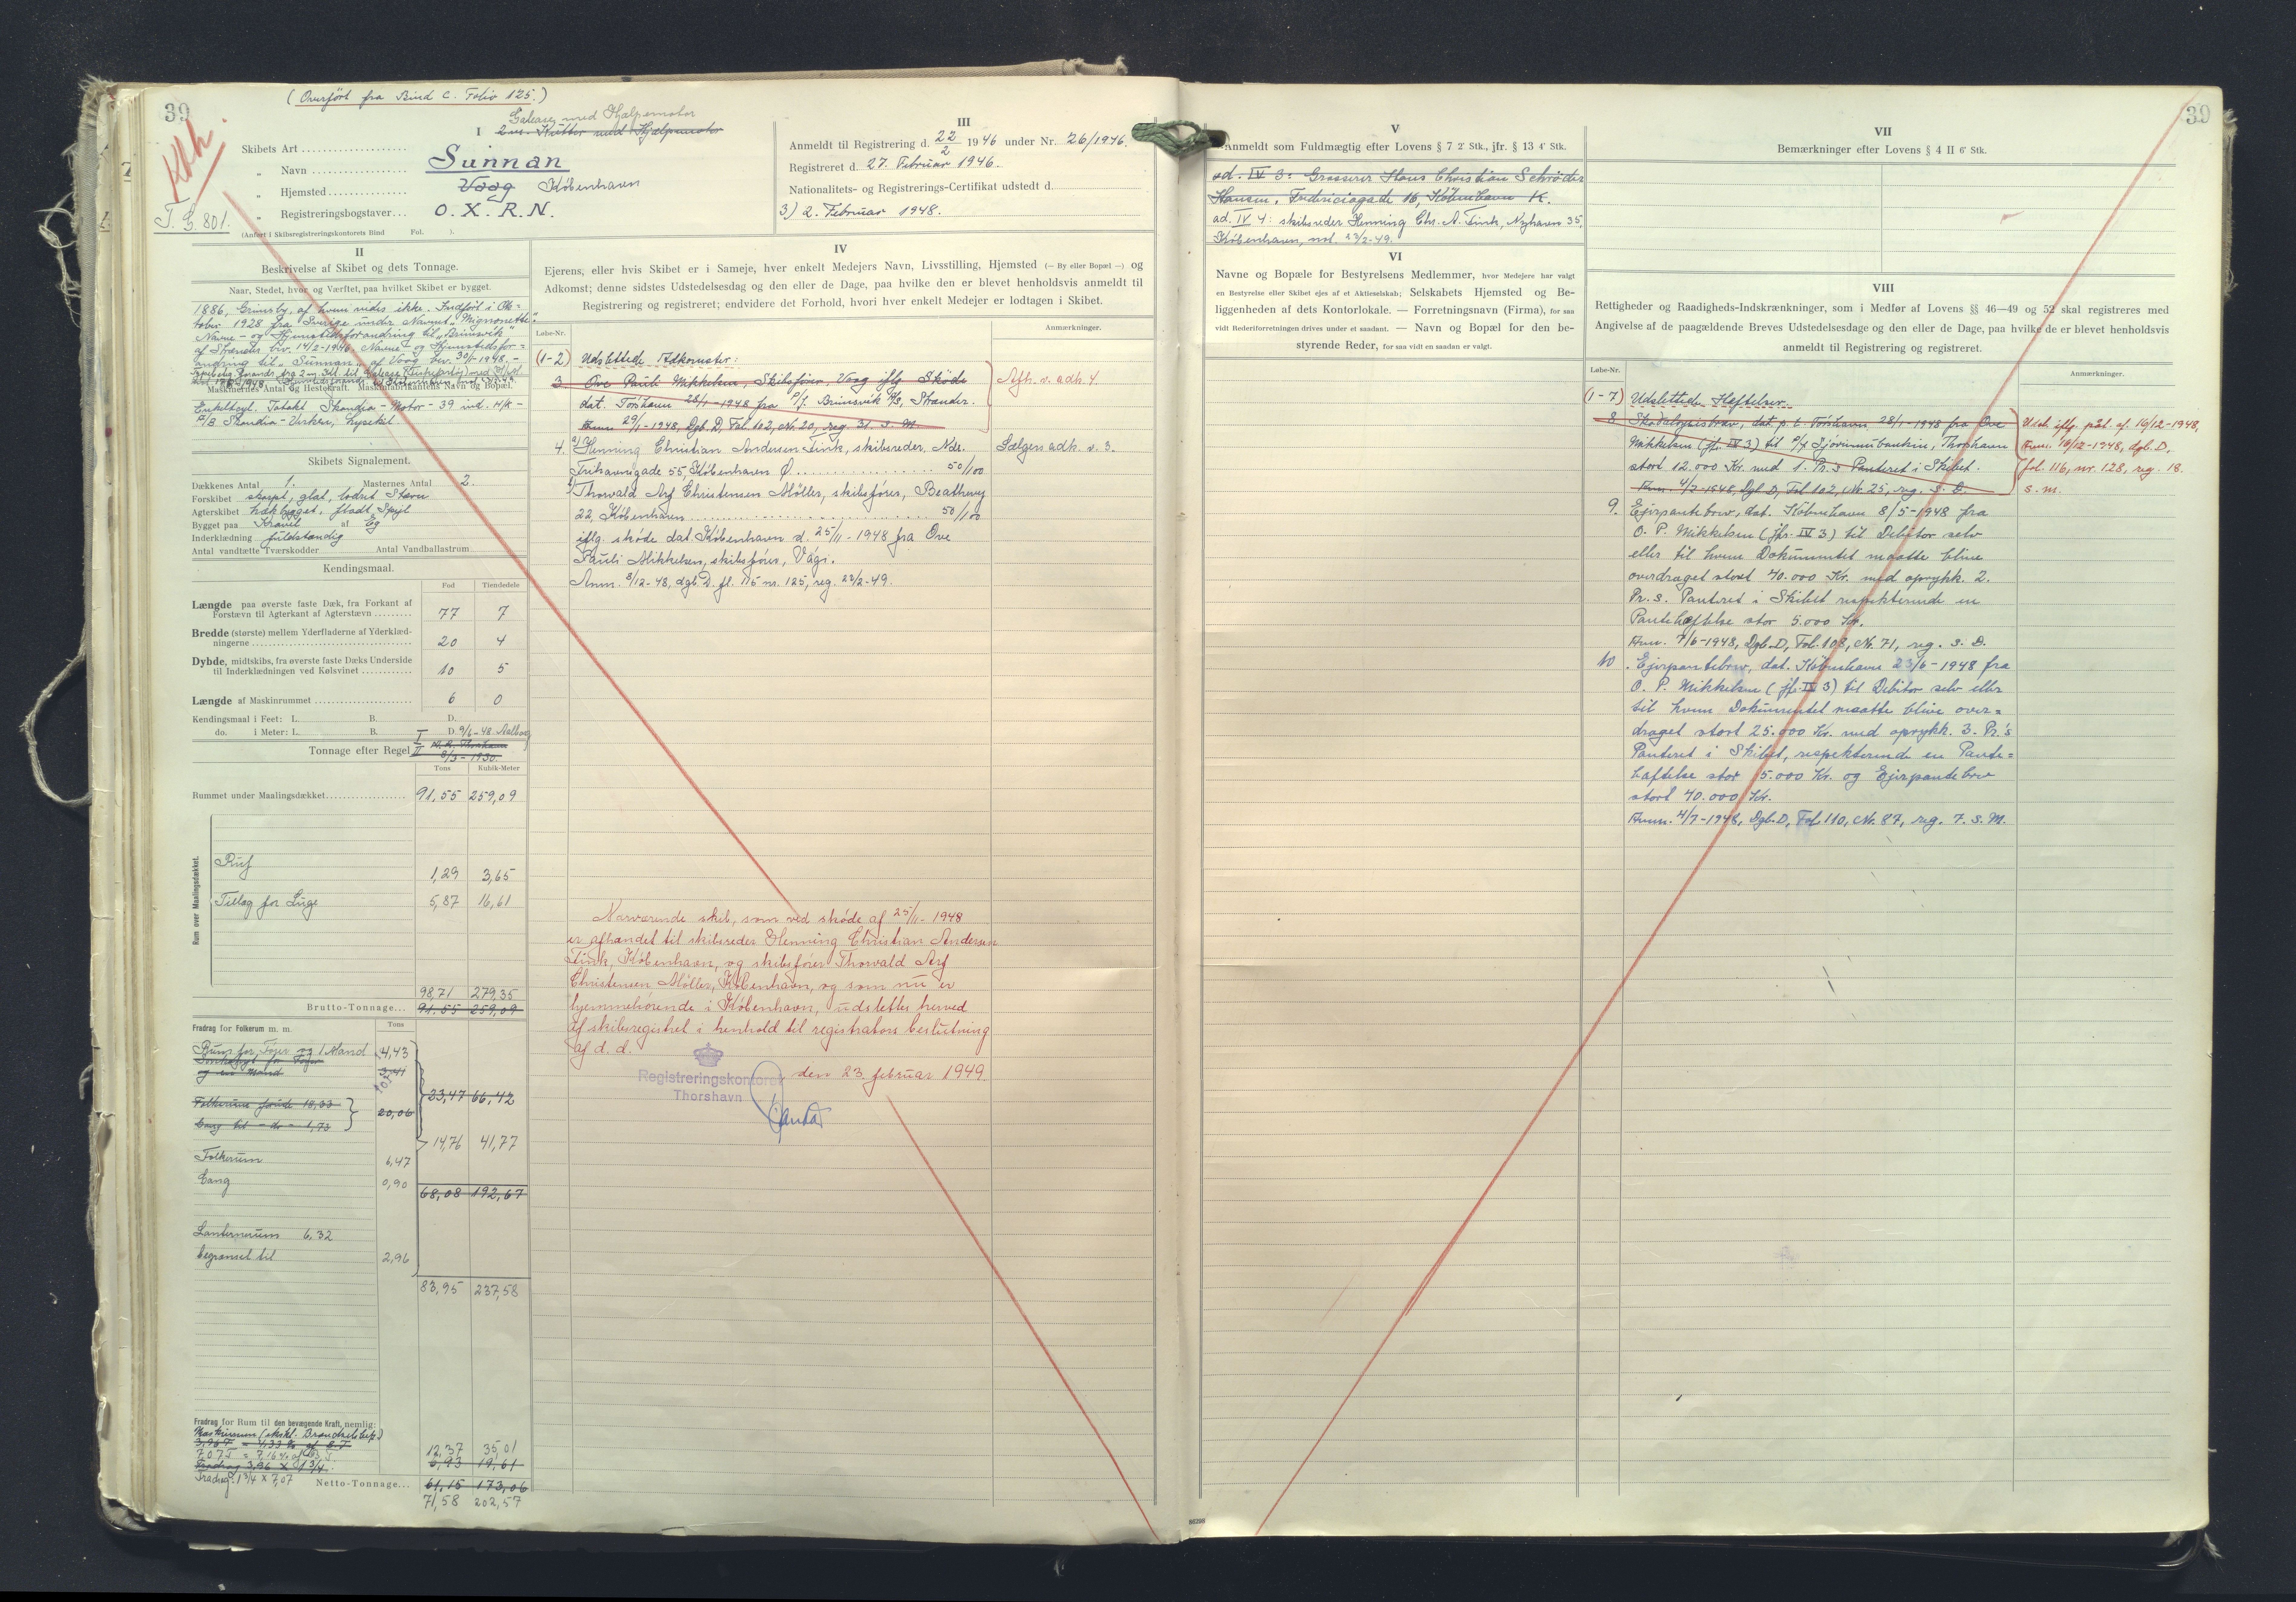 39
Kbh.
(Overfört fra Bind C. Folio 125.)
T. G. 801.
I
Galease med Hjælpemotor
2 m. Kutter med Hjælpemotor
Skibets Art
„ Navn
Sunnan
„ Hjemsted
Vaag København
„ Registreringsbogstaver
O. X. R. N.
(Anført i Skibsregistreringskontorets Bind Fol. ).
III
Anmeldt til Registrering d. 22/2 1946 under Nr. 26/1946.
Registreret d. 27. Februar 1946.
Nationalitets- og Registrerings-Certifikat udstedt d.
3) 2. Februar 1948.
II
Beskrivelse af Skibet og dets Tonnage.
Naar, Stedet, hvor og Værftet, paa hvilket Skibet er bygget.
1886, Grimsby, af hvem vides ikke. Indført i Ok=
tober 1928 fra Sverige under Navnet „Mignonette".
Navne- og Hjemstedsforandring til „Brimsvik"
af Strænder bev. 14/2-1946. Navne- og Hjemstedsfor=
andring til „Sunnan" af Vaag bev. 30/1-1948.-
Maskinernes Antal og Hestekraft. Maskinfabrikantens Navn og Bopæl.
Enkeltcyl. Totakt Skandia-Motor - 39 ind. H/K -
A/B Skandia-Verken, Lysekil.
Skibets Signalement.
Dækkenes Antal 1. Masternes Antal 2.
Forskibet skarpt, glat, lodret Stævn
Agterskibet hækbygget, fladt Spejl
Bygget paa Kravel af Eg
Inderklædning fuldstændig
Antal vandtætte Tværskodder Antal Vandballastrum
Kendingsmaal.
Fod Tiendedele
Længde paa øverste faste Dæk, fra Forkant af
Forstævn til Agterkant af Agterstævn 77 7
Bredde (største) mellem Yderfladerne af Yderklæd-
ningerne 20 4
Dybde, midtskibs, fra øverste faste Dæks Underside
til Inderklædningen ved Kølsvinet 10 5
Længde af Maskinrummet 6 0
Kendingsmaal i Feet: L. B. D.
do. i Meter: L. B. D.
9/6-48 Aalborg
Tonnage efter Regel I II
8/3-1930.
Tons Kubik-Meter
Rummet under Maalingsdækket 91,55 259,09
Rum over Maalingsdækket.
Ruf 1,29 3,65
Tillæg for Luge 5,87 16,61
98,71 279,35
Brutto-Tonnage 91.55 259,09
Fradrag for Folkerum m. m. Tons
Rum for Fører og 1 Mand 4,43
og en Mand 3,41
23,47 66,42
Folkerum forude 18,33
Gang til - do - 1,73
20,06
14,76 41,77
Folkerum 6,47
Gang 0,90
68,08 192,67
Lanternerum 6,32
begrænset til 2,96
83,95 237,58
Fradrag for Rum til den bevægende Kraft, nemlig:
Maskinrum (ekskl. Brændselsbeh.)
3,96 T = 4,33 % af B.T
7,07 T = 7,16 % af B.T.
12,37 35,01
Fradrag 3,96 X 1 3/4
6,93 19,61
Fradrag: 1 3/4 x 7,07
Netto-Tonnage 61,15 173,06
71,58 202,57
IV
Ejerens, eller hvis Skibet er i Sameje, hver enkelt Medejers Navn, Livsstilling, Hjemsted (— By eller Bopæl —) og
Adkomst; denne sidstes Udstedelsesdag og den eller de Dage, paa hvilke den er blevet henholdsvis anmeldt til
Registrering og registreret; endvidere det Forhold, hvori hver enkelt Medejer er lodtagen i Skibet.
Løbe-Nr. Anmærkninger.
(1-2) Udslettede Adkomster:
3 Ove Pauli Mikkelsen, Skibsfører, Vaag iflg. Skøde
dat. Tórshavn 28/1-1948 fra P/f. Brimsvik A/S, Strænder.
Anm. 29/1-1948, Dgb. D, Fol. 102, Nr. 20, reg. 31. s. M.
Afh. v. adh. 4.
4. a/ Henning Christian Andersen Fink, skibsreder, Ndr.
Frihavnsgade 55, København Ø. 50/100
b/ Thorvald Arf Christensen Möller, skibsfører, Beathevej
22, København 50/100
iflg. skøde dat. København d. 25/11-1948 fra Ove
Pauli Mikkelsen, skibsfører, Vági.
Anm. 8/12-48, dgb. D. fl. 115 nr. 125, reg. 22/2-49.
Sælgers adk. v. 3.
Nærværende skib, som ved skøde af 25/11-1948
er afhændet til skibsreder Henning Christian Andersen
Fink, København, og skibsfører Thorvald Arf
Christensen Möller, København, og som nu er
hjemmehørende i København, udslettes herved
af skibsregistret i henhold til registrators beslutning
af d. d.
Registreringskontoret
Thorshavn
den 23. februar 1949.
V
Anmeldt som Fuldmægtig efter Lovens § 7 2' Stk., jfr. § 13 4' Stk.
ad. IV 3: Grosserer Hans Christian Schrøder
Hansen, Fredericiagade 16, København K.
ad. IV 4: skibsreder Henning Chr. A. Fink, Nyhavn 35,
København, not. 23/2-49.
VI
Navne og Bopæle for Bestyrelsens Medlemmer, hvor Medejere har valgt
en Bestyrelse eller Skibet ejes af et Aktieselskab; Selskabets Hjemsted og Be-
liggenheden af dets Kontorlokale. — Forretningsnavn (Firma), for saa
vidt Rederiforretningen drives under et saadant. — Navn og Bopæl for den be-
styrende Reder, for saa vidt en saadan er valgt.
39
VII
Bemærkninger efter Lovens § 4 II 6' Stk.
VIII
Rettigheder og Raadigheds-Indskrænkninger, som i Medfør af Lovens §§ 46—49 og 52 skal registreres med
Angivelse af de paagældende Breves Udstedelsesdag og den eller de Dage, paa hvilke de er blevet henholdsvis
anmeldt til Registrering og registreret.
Løbe-Nr. Anmærkninger.
(1-7) Udslettede Hæftelser.
8 Skadesløsbrev, dat. p. t. Tórshavn 28/1-1948 fra Ove
Mikkelsen (jf. IV 3) til P/f Sjóvinnubankin, Thorshavn
stort 12.000 Kr. med 1. Pr.s Panteret i Skibet.
Anm. 4/2-1948, Dgb. D, Fol 102, Nr. 25, reg. s. D.
Udsl. iflg. påt. af 16/12-1948,
Anm. 16/12-1948, dgb. D,
fol. 116, nr. 128, reg. 18.
s. m.
9. Ejerpantebrev, dat. København 8/5-1948 fra
O. P. Mikkelsen (jfr. IV 3) til Debitor selv
eller til hvem Dokumentet maatte blive
overdraget stort 40.000 Kr. med oprykk. 2.
Pr. s. Panteret i Skibet respekterende en
Pantehæftelse stor 5.000 Kr.
Anm. 7/6-1948, Dgb. D, Fol. 108, Nr. 71, reg. s. D.
10. Ejerpantebrev, dat. København 23/6-1948 fra
O. P. Mikkelsen (jfr. IV 3) til Debitor selv eller
til hvem Dokumentet maatte blive over=
draget stort 25.000 Kr. med oprykk. 3. Pr.'s
Panteret i Skibet, respekterende en Pante=
hæftelse stor 5.000 Kr. og Ejerpantebrev
stort 40.000 Kr.
Anm. 4/7-1948, Dgb. D, Fol. 110, Nr. 87, reg. 7. s. M.